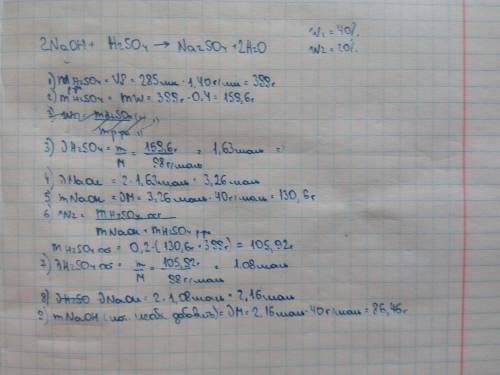 2NaOH + H2SO4 → Na2SO4 + 2H2O
w1 = 40%.
w2 = 20%.
1) m H2SO4 = Vρ = 285мл · 1.40г/мл = 399г
рр
2) m H2SO4 = mw = 399г · 0.4 = 159,6г
3) νH2SO4 = m/M = 159,6г / 98г/моль = 1,63моль =
4) νNaOH = 2 · 1,63моль = 3,26моль
5) mNaOH = νM = 3,26моль · 40г/моль = 130,6г
6) w2 = mH2SO4 ост / mNaOH + mH2SO4 рр
mH2SO4 ост = 0,2 · (130,6г + 399г) = 105,92г
7) νH2SO4 ост = m/M = 105,92г / 98г/моль = 1.08моль
8) νH2SO νNaOH = 2 · 1,08моль = 2,16моль
9) mNaOH (кот. необх. добавить) = νM = 2.16моль · 40г/моль = 86,46г